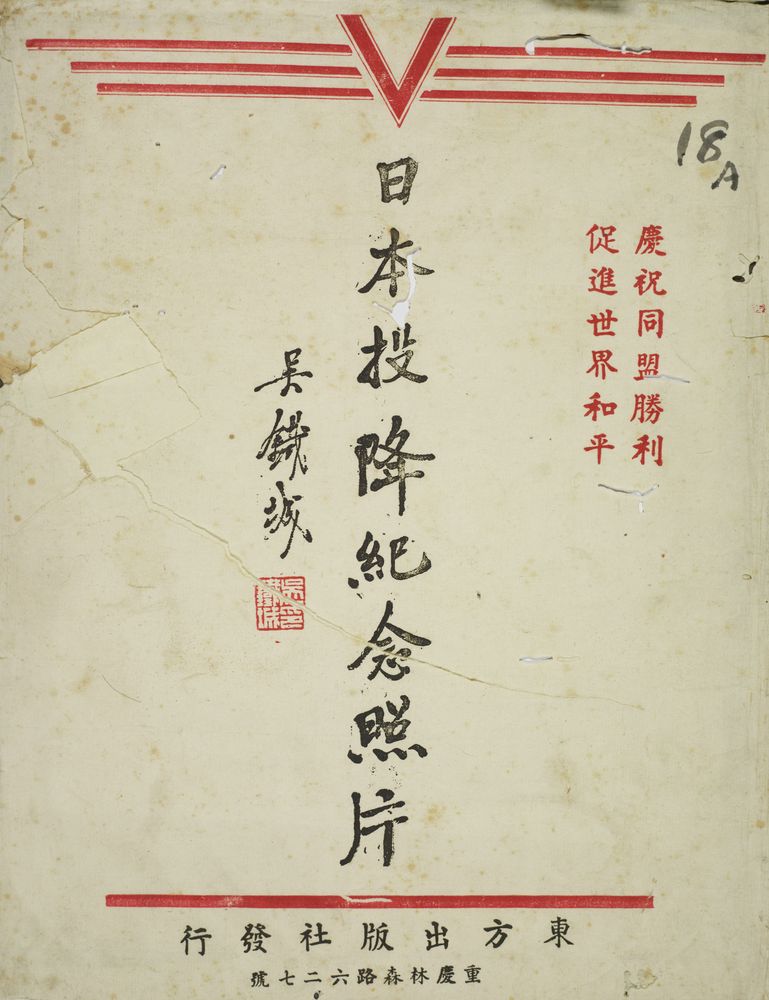 18
A
慶祝同盟勝利
促進世界和平
日本投降紀念照片
吳鐵城
吳鐵城印
東方出版社發行
重慶林森路六二七號